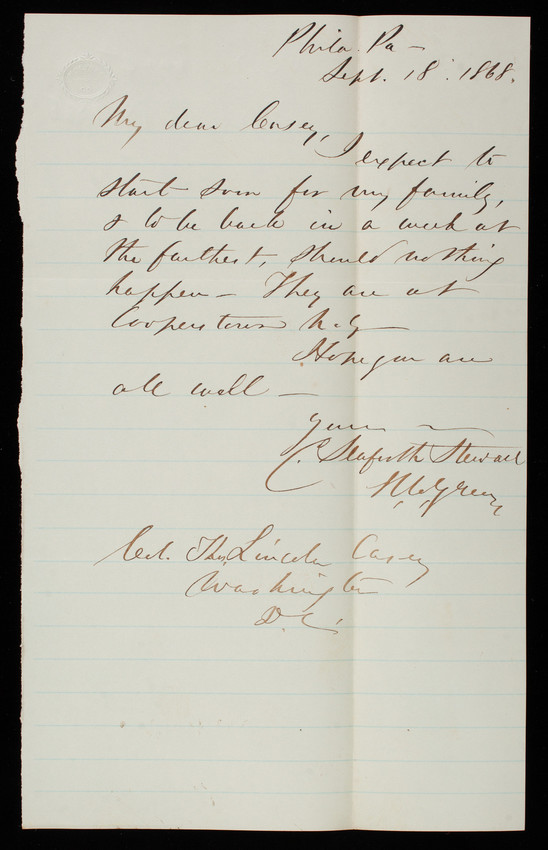 Phila. Pa -
Sept. 18. 1868.
My dear Casey,
I expect to
start soon for my family,
& to be back in a week at
the farthest, should nothing
happen - They are at
Cooperstown N.Y -
Hope you are
all well -
Yours
C. Seaforth Stewart
Col. Thos. Lincoln Casey
Washington
D.C.